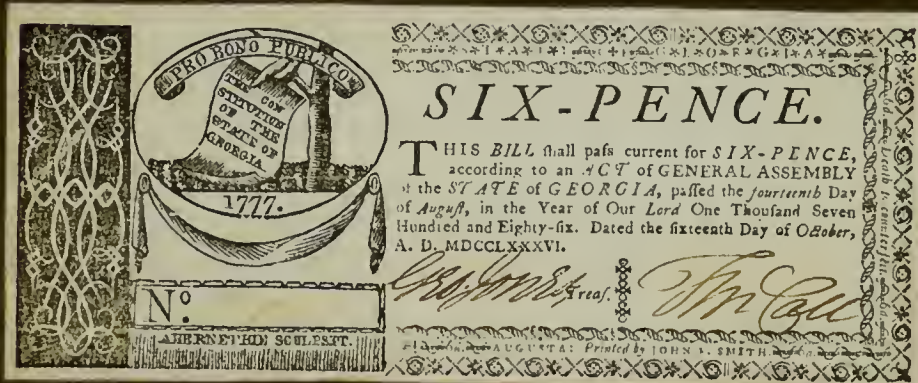 PRO BONO PUBLICO
THE CON
STITUTION
OF THE
STATE OF
GEORGIA
1777.
No.
ABERNETHIE SCULPSIT.
SIX-PENCE.
THIS BILL ſhall paſs current for SIX-PENCE,
according to an ACT of GENERAL ASSEMBLY
of the STATE of GEORGIA, paſſed the fourteenth Day
of Auguſt, in the Year of Our Lord One Thouſand Seven
Hundred and Eighty-ſix. Dated the ſixteenth Day of October,
A. D. MDCCLXXXVI.
Geo. Jones Treaſ.
AUGUSTA: Printed by JOHN E. SMITH.